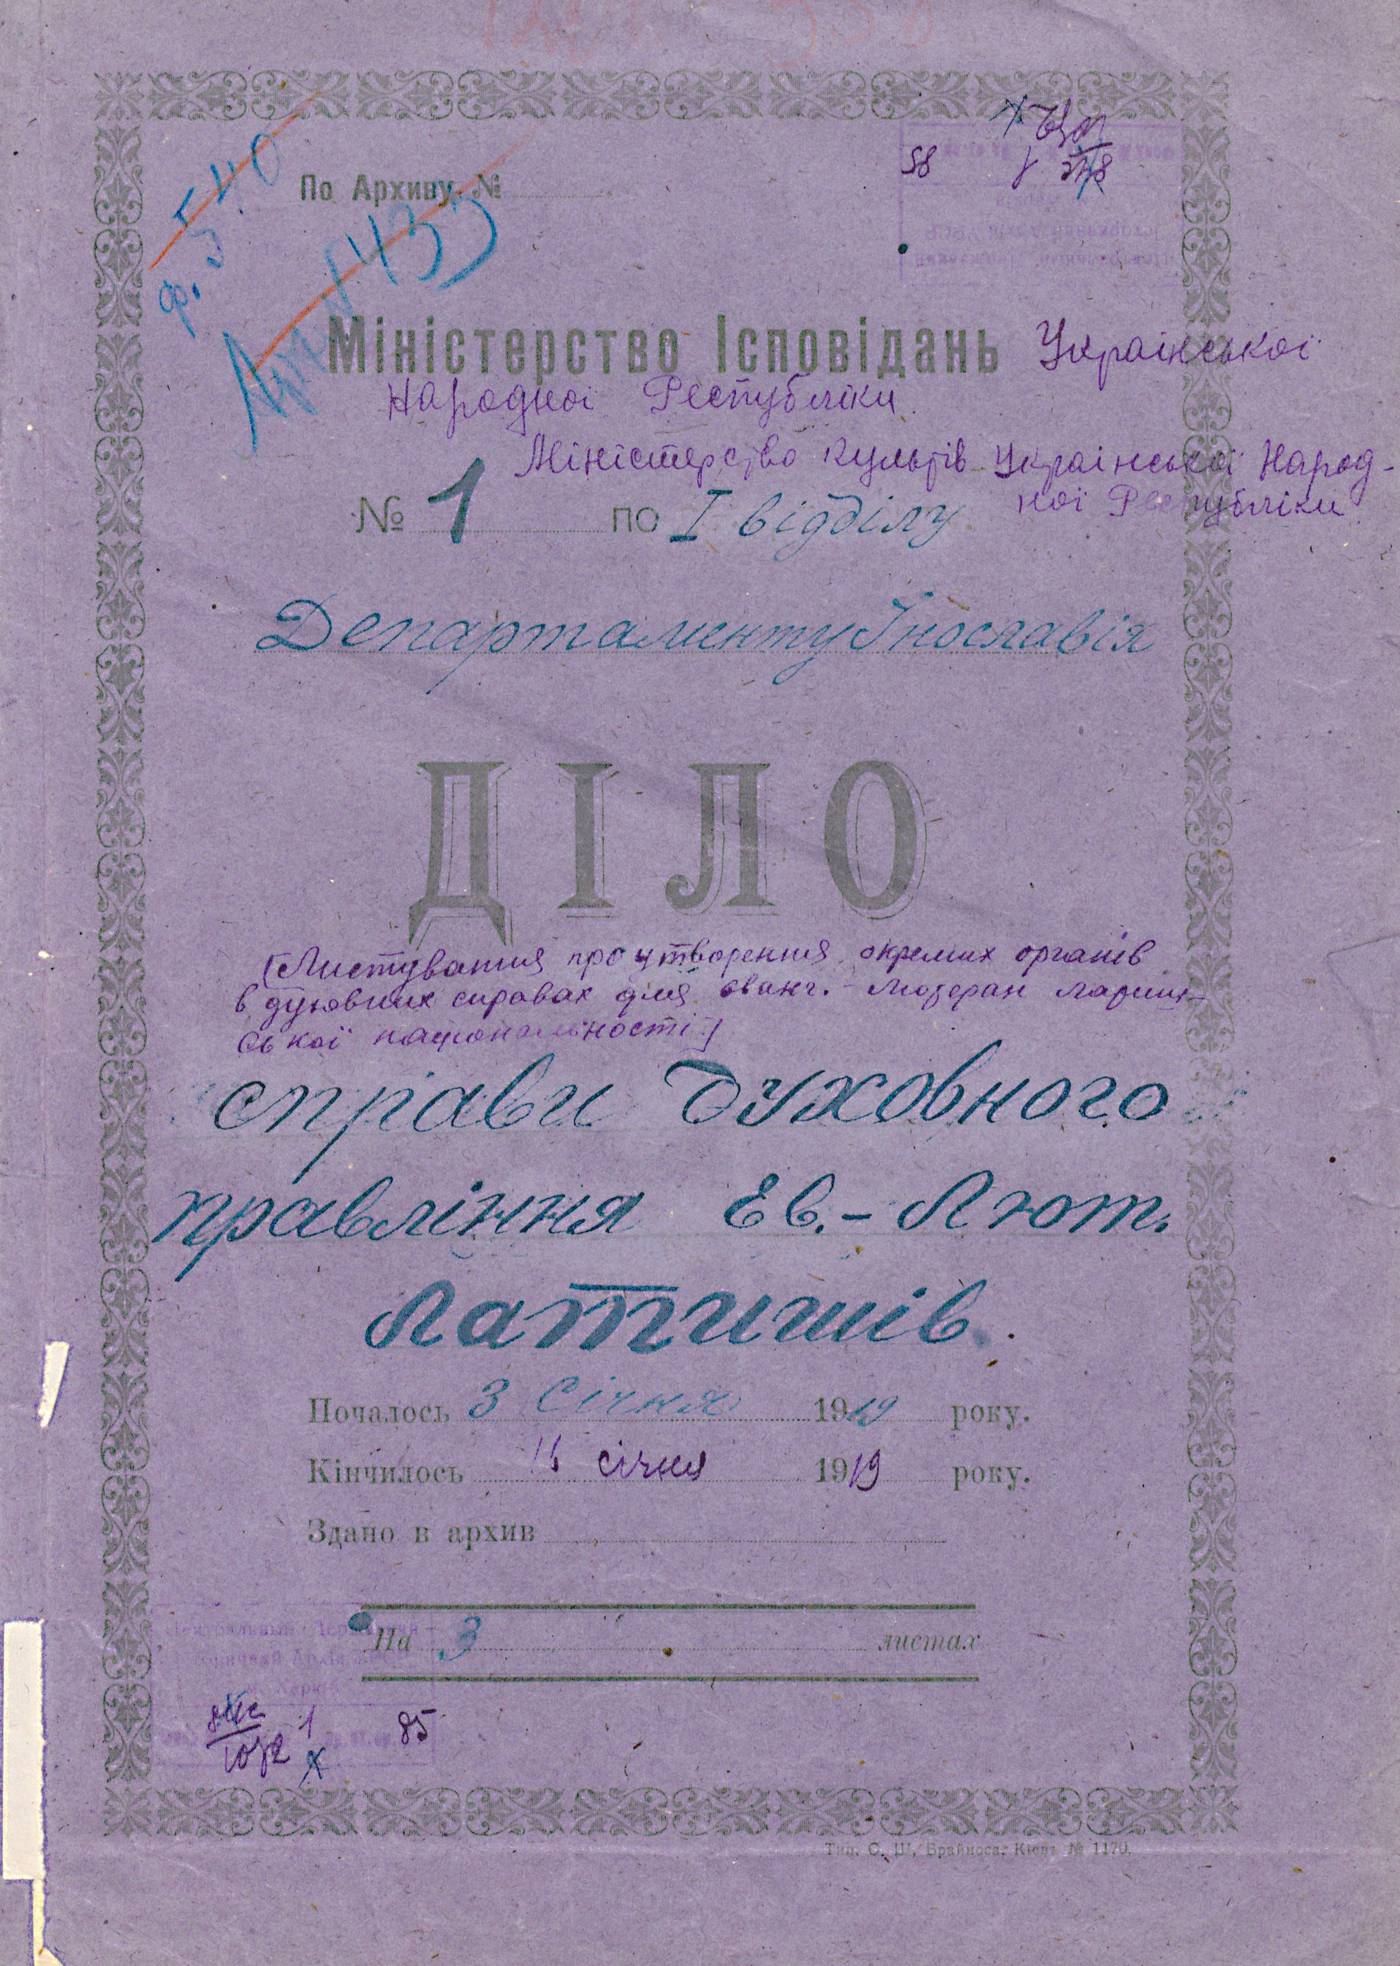 ф. 540
По Архиву №
Арх № 433
58
Міністерство Ісповідань Української
Народної Республіки
Міністерство культів Української Народ-
ної Республіки
№ 1 по I відділу
Департаменту Інославія
ДІЛО
[Листування про утворення окремих органів
в духовних справах для єванг.-лютеран латиш-
ської національності]
справи духовного
правління Ев.-Лют.
Латишів.
Почалось 3 Січня 1919 року.
Кінчилось січня 1919 року.
Здано в архив
На 3 листах
1 85
Тип. С. Ш. Брайноса. Кіевъ № 1170.